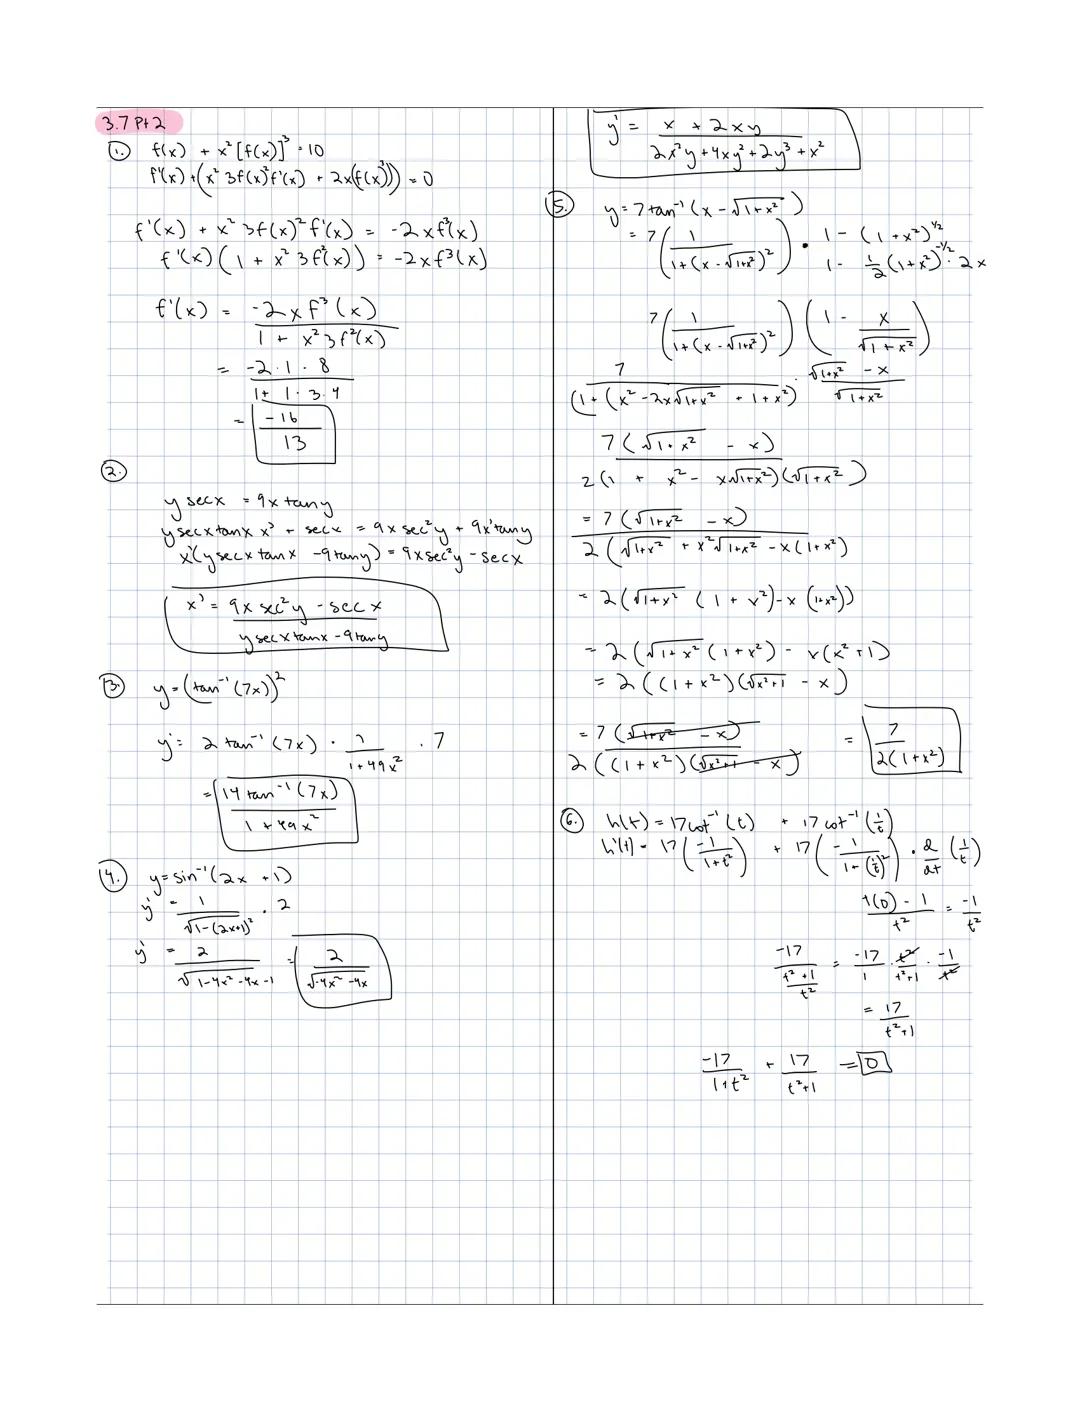 3.7 Pt 2
1. f(x) + x² [f(x)]³ = 10
f'(x) + (x² 3f(x)² f'(x) + 2x(f(x)³)) = 0
f'(x) + x² 3f(x)² f'(x) = -2x f³(x)
f'(x) (1 + x² 3f²(x)) = -2x f³(x)
f'(x) = -2x f³(x) / 1 + x² 3f²(x)
= -2·1·8 / 1 + 1·3·4
= -16 / 13
2.
y sec x = 9x tan y
y sec x tan x x' + sec x = 9x sec² y + 9x' tan y
x'(y sec x tan x - 9 tan y) = 9x sec² y - sec x
x' = 9x sec² y - sec x / y sec x tan x - 9 tan y
3. y = (tan⁻¹(7x))²
y' = 2 tan⁻¹(7x) · 1 / 1+49x² · 7
= 14 tan⁻¹(7x) / 1 + 49x²
4. y = sin⁻¹(2x + 1)
y' = 1 / √1-(2x+1)² · 2
y' = 2 / √1-4x²-4x-1 = 2 / √-4x²-4x
y' = x + 2xy / 2x²y + 4xy² + 2y³ + x²
5. y = 7 tan⁻¹(x - √1+x²)
= 7 (1 / 1+(x-√1+x²)²) · 1 - (1+x²)^1/2
1 - 1/2 (1+x²)^-1/2 · 2x
7 (1 / 1+(x-√1+x²)²) (1 - x / √1+x²)
7 / (1+(x²-2x√1+x² + 1+x²) · √1+x² - x / √1+x²
7(√1+x² - x) / 2(1 + x² - x√1+x²)(√1+x²)
= 7(√1+x² - x) / 2(√1+x² + x²√1+x² - x(1+x²)
= 2(√1+x² (1+x²)-x(1+x²))
= 2(√1+x² (1+x²) - x(x²+1)
= 2((1+x²)(√x²+1 - x)
= 7(√1+x² - x) / 2((1+x²)(√x²+1 - x) = 7 / 2(1+x²)
6. h(t) = 17 cot⁻¹(t) + 17 cot⁻¹(1/t)
h'(t) = 17(-1 / 1+t²) + 17(-1 / 1+(1/t)²) · d/dt (1/t)
t(0) - 1 / t² = -1 / t²
-17 / t²+1 / t² = -17 / 1 · t² / t²+1 · -1 / t²
= 17 / t²+1
-17 / 1+t² + 17 / t²+1 = 0